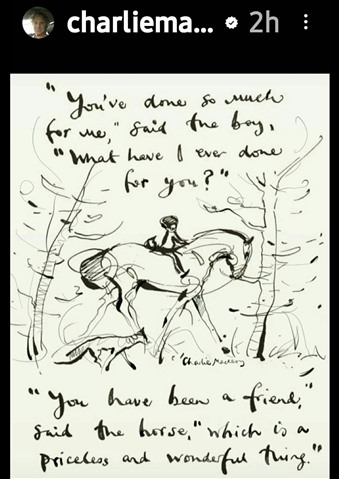 charliema... 2h
"You've done so much
for me," said the boy,
"What have I ever done
for you?"
Charlie Mackesy
"You have been a friend,"
said the horse, "which is a
priceless and wonderful thing."